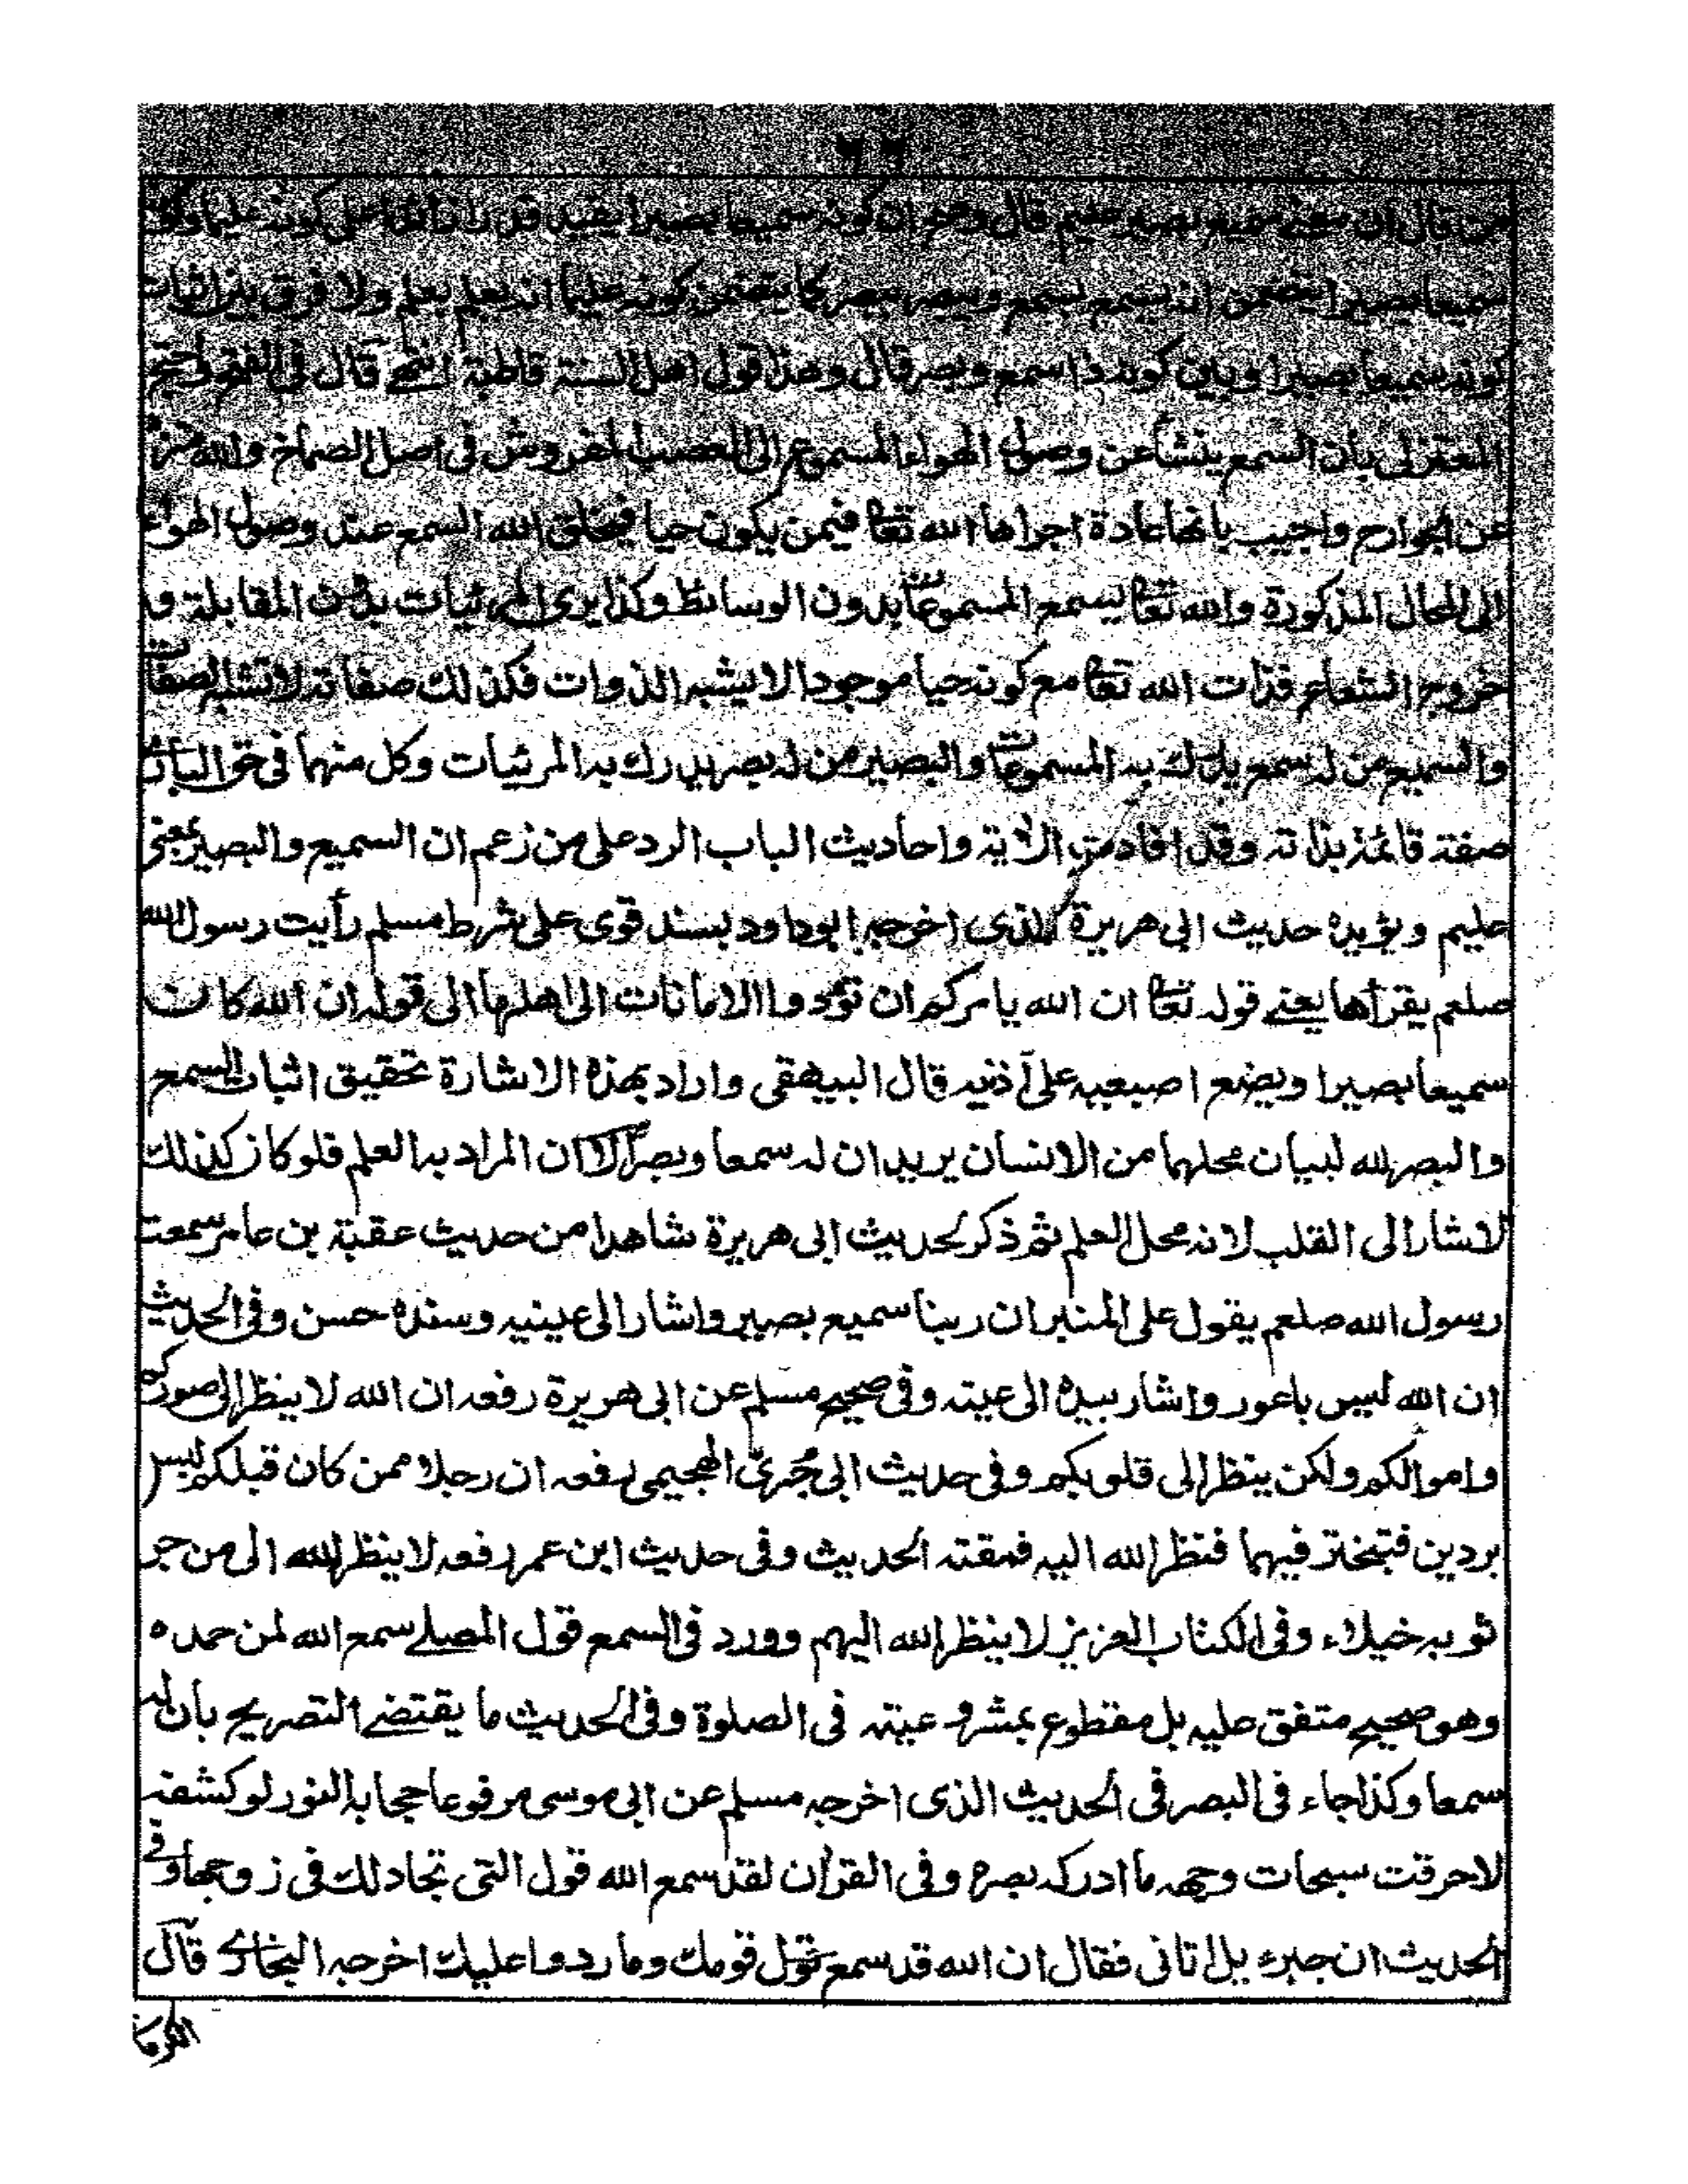 ٦٦
من قال ان معنى سميع بصير عليم قال وصح ان كونه سميعا بصيرا يفيد قدرا زائدا على كونه عليما وكونه
سميعا بصيرا يتضمن انه يسمع بسمع ويبصر ببصر كما يتضمن كونه عليما انه يعلم بعلم ولا فرق بين اثبات
كونه سميعا بصيرا وبين كونه ذا سمع وبصر قال وهذا قول اهل السنة قاطبة انتهى قال فى الفتح واحتج
المعتزلى بان السمع ينشأ عن وصول الهواء المسموع الى العصب المفروش فى اصل الصماخ والله منزه
عن الجوارح واجيب بانها عادة اجراها الله تعا فيمن يكون حيا فيخلق الله السمع عند وصول الهواء
الى المحال المذكورة والله تعا يسمع المسموعات بدون الوسائط وكذا يرى المرئيات بدون المقابلة و
خروج الشعاع فذات الله تعا مع كونه حيا موجودا لا يشبه الذوات فكذلك صفاته لا تشبه الصفات
والسميع من له سمع يدرك به المسموعات والبصير من له بصر يدرك به المرئيات وكل منهما فى حق البارى
صفة قائمة بذاته وقد افادت الآية واحاديث الباب الرد على من زعم ان السميع والبصير بمعنى
عليم ويؤيده حديث ابى هريرة الذى اخرجه ابوداود بسند قوى على شرط مسلم رأيت رسول الله
صلعم يقرأها يعنى قوله تعا ان الله يامركم ان تؤدوا الامانات الى اهلها الى قوله ان الله كان
سميعا بصيرا ويضع اصبعيه على أذنيه قال البيهقى واراد بهذه الاشارة تحقيق اثبات السمع
والبصر لله لبيان محلهما من الانسان يريد ان له سمعا وبصرا لا ان المراد به العلم فلو كان كذلك
لاشار الى القلب لانه محل العلم ثم ذكر لحديث ابى هريرة شاهدا من حديث عقبة بن عامر سمعت
رسول الله صلعم يقول على المنبر ان ربنا سميع بصير واشار الى عينيه وسنده حسن وفى الحديث
ان الله ليس باعور واشار بيده الى عينه وفى صحيح مسلم عن ابى هريرة رفعه ان الله لا ينظر الى صوركم
واموالكم ولكن ينظر الى قلوبكم وفى حديث ابى جُرىّ الهجيمى رفعه ان رجلا ممن كان قبلكم لبس
بردين فتبختر فيهما فنظر الله اليه فمقته الحديث وفى حديث ابن عمر رفعه لا ينظر الله الى من جر
ثوبه خيلاء وفى الكتاب العزيز لا ينظر الله اليهم وورد فى السمع قول المصلے سمع الله لمن حمده
وهو صحيح متفق عليه بل مقطوع بمشروعيته فى الصلوة وفى الحديث ما يقتضے التصريح بأن له
سمعا وكذا جاء فى البصر فى الحديث الذى اخرجه مسلم عن ابى موسى مرفوعا حجابه النور لو كشفه
لاحرقت سبحات وجهه ما ادركه بصره وفى القرآن لقد سمع الله قول التى تجادلك فى زوجها وفى
الحديث ان جبرءيل اتانى فقال ان الله قد سمع قول قومك وما ردوا عليك اخرجه البخارے قال
الكرما